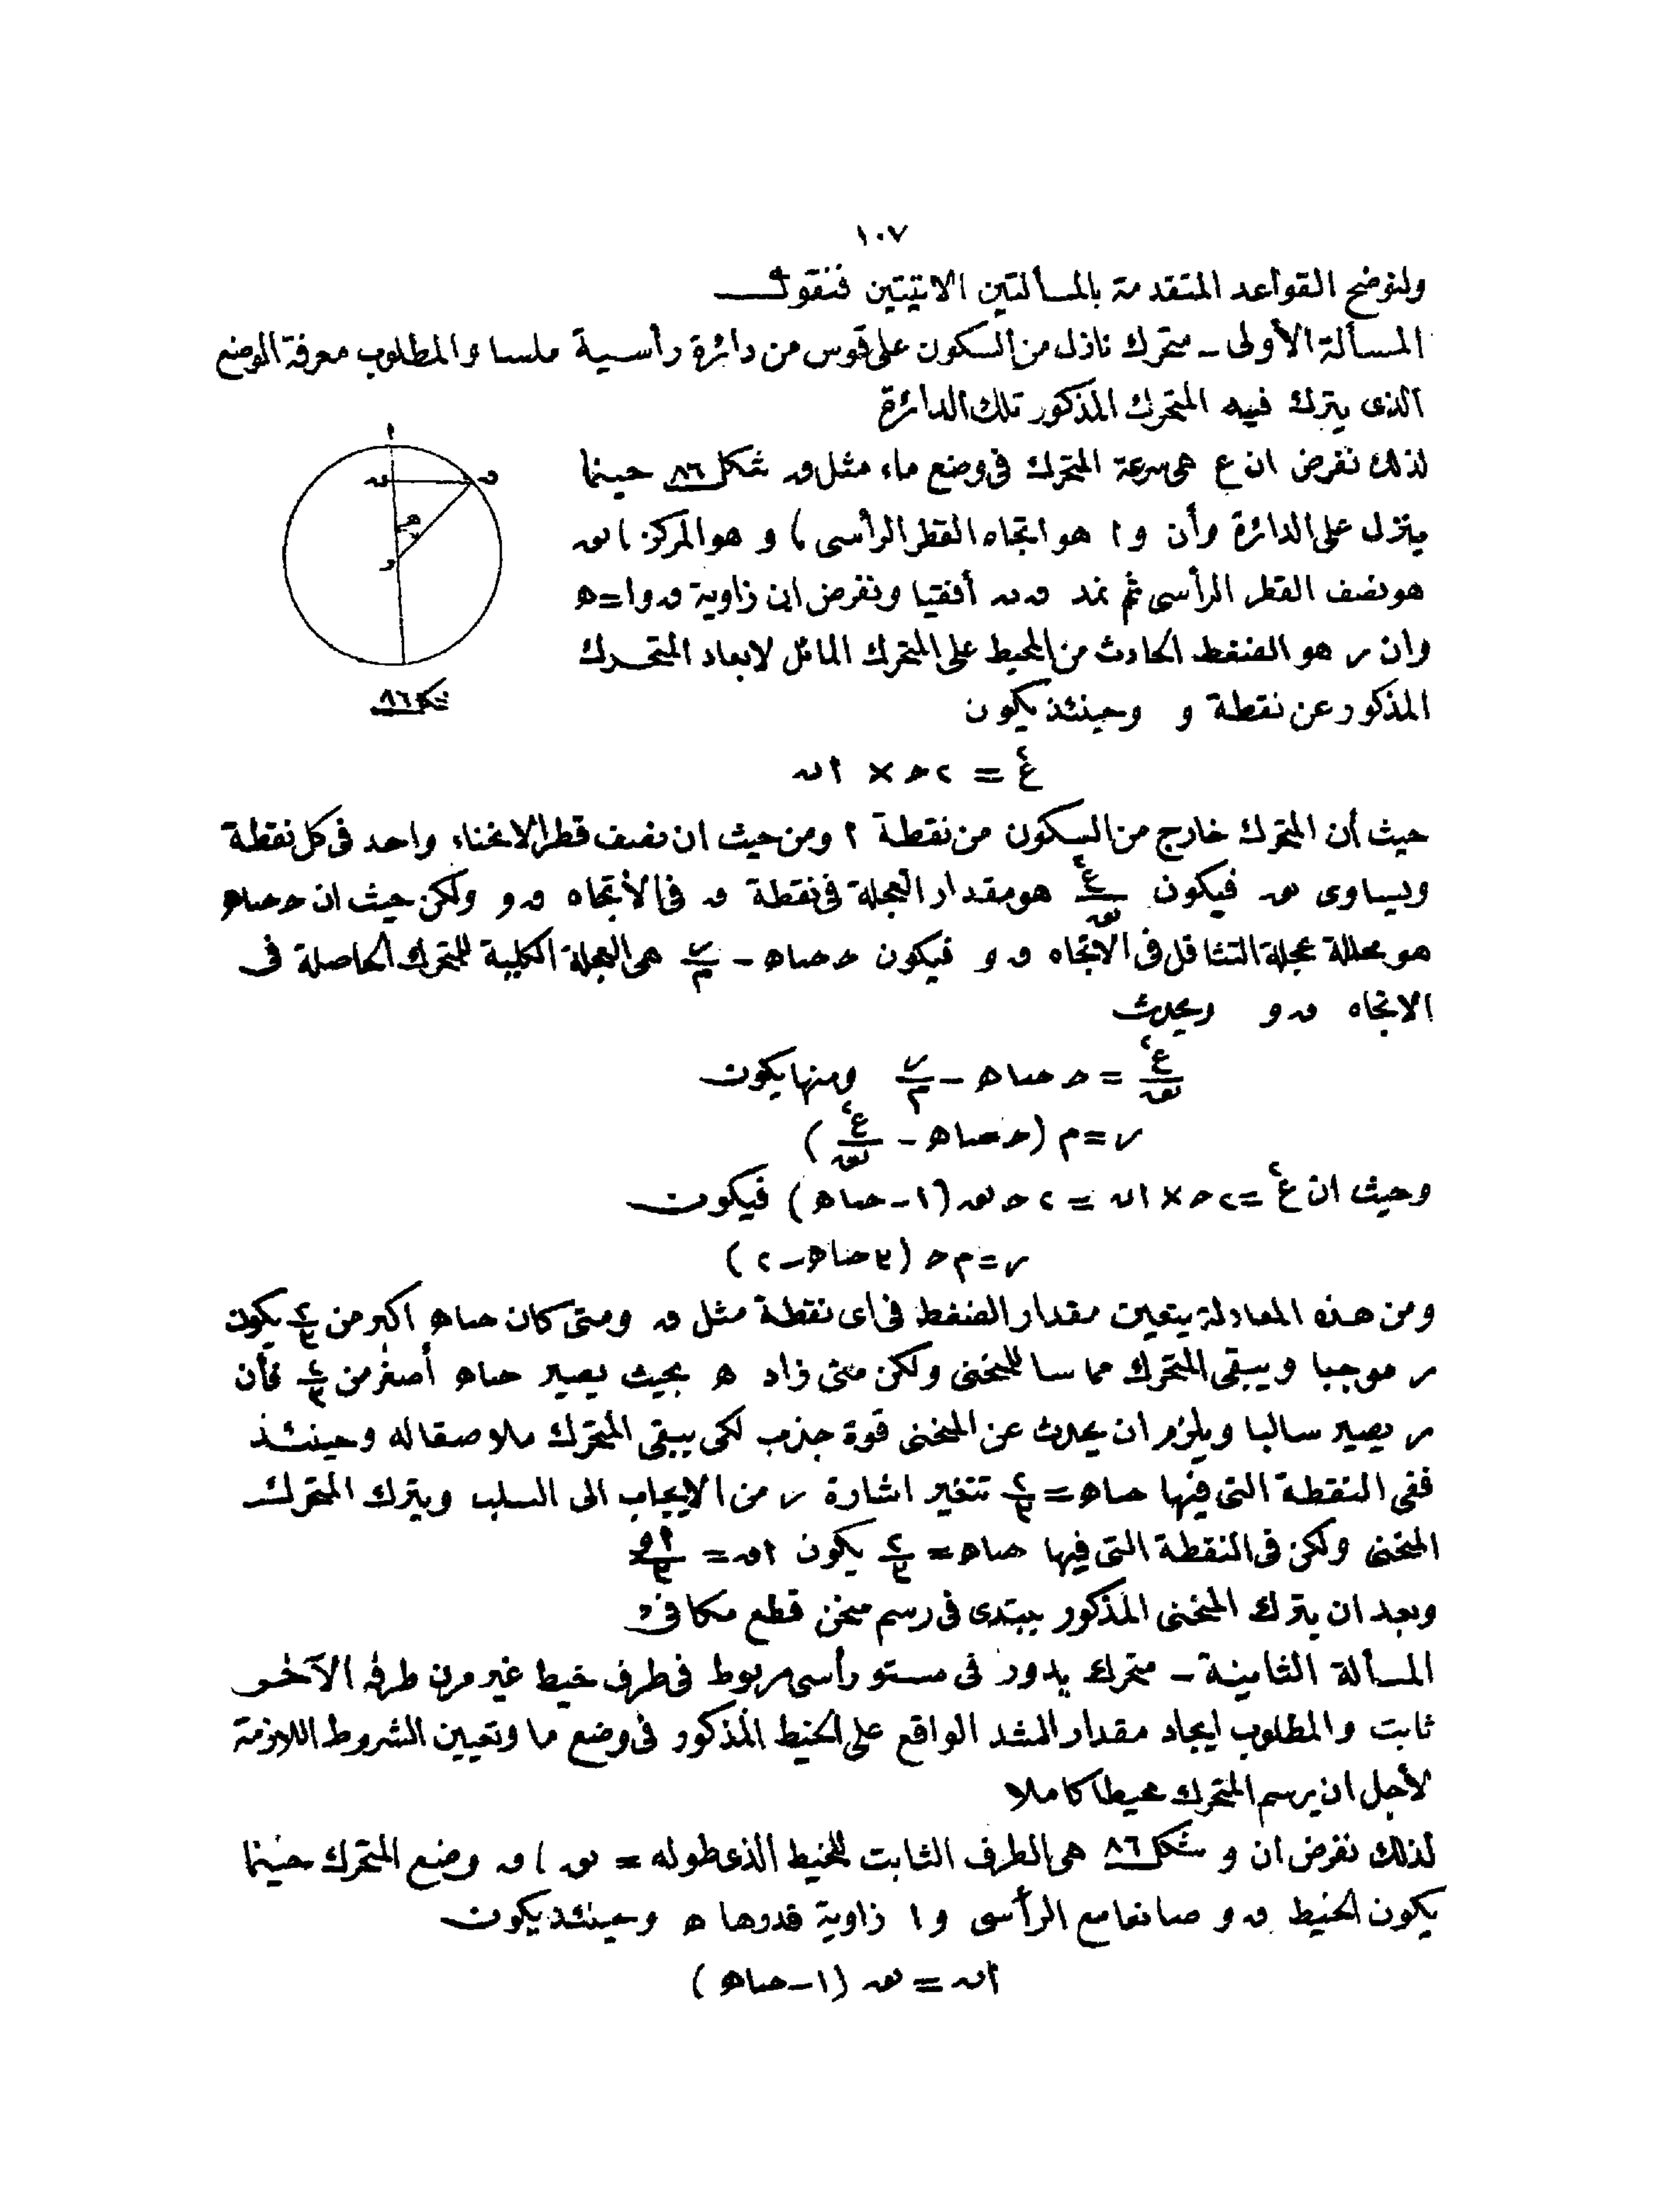 ١٠٧
ولنوضح القواعد المتقدمة بالمسألتين الاتيتين فنقول
المسألة الأولى ـ متحرك نازل من السكون على قوس من دائرة رأسية ملسا والمطلوب معرفة الوضع
الذى يترك فيه المتحرك المذكور تلك الدائرة
لذلك نفرض ان ع هى سرعة المتحرك فى وضع ماء مثل ں شكل ٨٦ حينما
ينزل على الدائرة وأن و ا هو اتجاه القطر الرأسى ) و هو المركز ) نق
هو نصف القطر الرأسى ثم نمد ں ں أفقيا ونفرض ان زاوية ں و ا = ه
وان ر هو الضغط الحادث من المحيط على المتحرك المائل لابعاد المتحرك
المذكور عن نقطة و وحينئذ يكون
ا
ں ں
ه
و
شكل ٨٦
ع٢ = ٢ح × اں
حيث أن المتحرك خارج من السكون من نقطة ا ومن حيث ان نصف قطر الانحناء واحد فى كل نقطة
ويساوى نق فيكون ع٢/نق هو مقدار العجلة فى نقطة ں فى الأتجاه ں و ولكن حيث ان ح حتاه
هو محللة عجلة التثاقل فى الاتجاه ں و فيكون ح حتاه - ر/م هى العجلة الكلية للمتحرك الحاصلة فى
الاتجاه ں و ويحدث
ع٢/نق = ح حتاه - ر/م ومنها يكون
ر = م (ح حتاه - ع٢/نق)
وحيث ان ع٢ = ٢ح × اں = ٢ ح نق (١ - حتاه) فيكون
ر = م ح (٣ حتاه - ٢)
ومن هذه المعادلة يتعين مقدار الضغط فى اى نقطة مثل ں ومتى كان حتاه اكبر من ٢/٣ يكون
ر موجبا ويبقى المتحرك مماسا للمنحنى ولكن متى زاد ه بحيث يصير حتاه أصغر من ٢/٣ فأن
ر يصير سالبا ويلزم ان يحدث عن المنحنى قوة جذب لكى يبقى المتحرك ملاصقا له وحينئذ
ففى النقطة التى فيها حتاه = ٢/٣ تتغير اشارة ر من الايجاب الى السلب ويترك المتحرك
المنحنى ولكن فى النقطة التى فيها حتاه = ٢/٣ يكون اں = ا و/٣
وبعد ان يترك المنحنى المذكور يبتدى فى رسم منحن قطع مكافئ
المسألة الثانية ـ متحرك يدور فى مستو رأسى مربوط فى طرف خيط غير مرن طرفه الآخر
ثابت والمطلوب ايجاد مقدار الشد الواقع على الخيط المذكور فى وضع ما وتعيين الشروط اللازمة
لأجل ان يرسم المتحرك محيطا كاملا
لذلك نفرض ان و شكل ٨٦ هى الطرف الثابت للخيط الذى طوله = نق ) ں وضع المتحرك حينما
يكون الخيط ں و صانعا مع الرأسى و ا زاوية قدرها ه وحينئذ يكون
اں = نق (١ - حتاه)